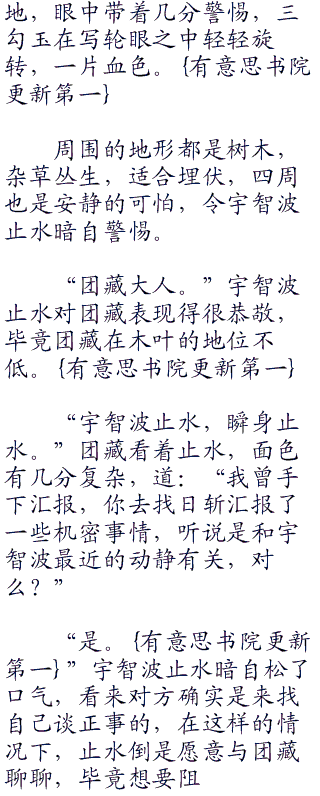 地，眼中带着几分警惕，三
勾玉在写轮眼之中轻轻旋
转，一片血色。{有意思书院
更新第一}
周围的地形都是树木，
杂草丛生，适合埋伏，四周
也是安静的可怕，令宇智波
止水暗自警惕。
“团藏大人。”宇智波
止水对团藏表现得很恭敬，
毕竟团藏在木叶的地位不
低。{有意思书院更新第一}
“宇智波止水，瞬身止
水。”团藏看着止水，面色
有几分复杂，道：“我曾手
下汇报，你去找日斩汇报了
一些机密事情，听说是和宇
智波最近的动静有关，对
么？”
“是。{有意思书院更新
第一}”宇智波止水暗自松了
口气，看来对方确实是来找
自己谈正事的，在这样的情
况下，止水倒是愿意与团藏
聊聊，毕竟想要阻